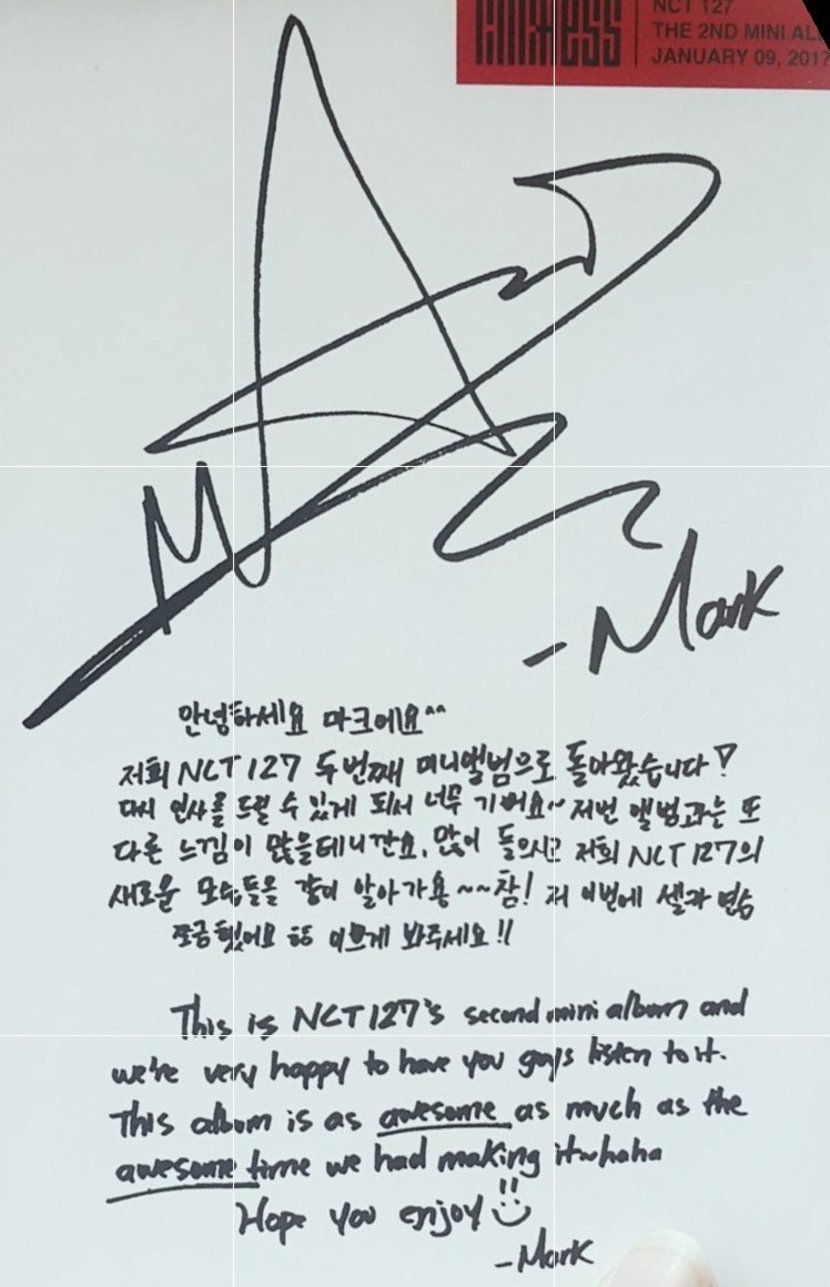 LIMITLESS
NCT 127
THE 2ND MINI AL
JANUARY 09, 2017
-Mark
안녕하세요 마크에요^^
저희 NCT 127 두번째 미니앨범으로 돌아왔습니다!
다시 인사를 드릴 수 있게 되서 너무 기뻐요~ 저번 앨범과는 또
다른 느낌이 많을테니깐요, 많이 들으시고 저희 NCT 127의
새로운 모습들을 같이 알아가용~~참! 저 이번에 셀카 연습
쪼금 했어요 ㅎㅎ 이쁘게 봐주세요!!
This is NCT 127's second mini album and
we're very happy to have you guys listen to it.
This album is as awesome as much as the
awesome time we had making it~haha
Hope you enjoy!!
-Mark